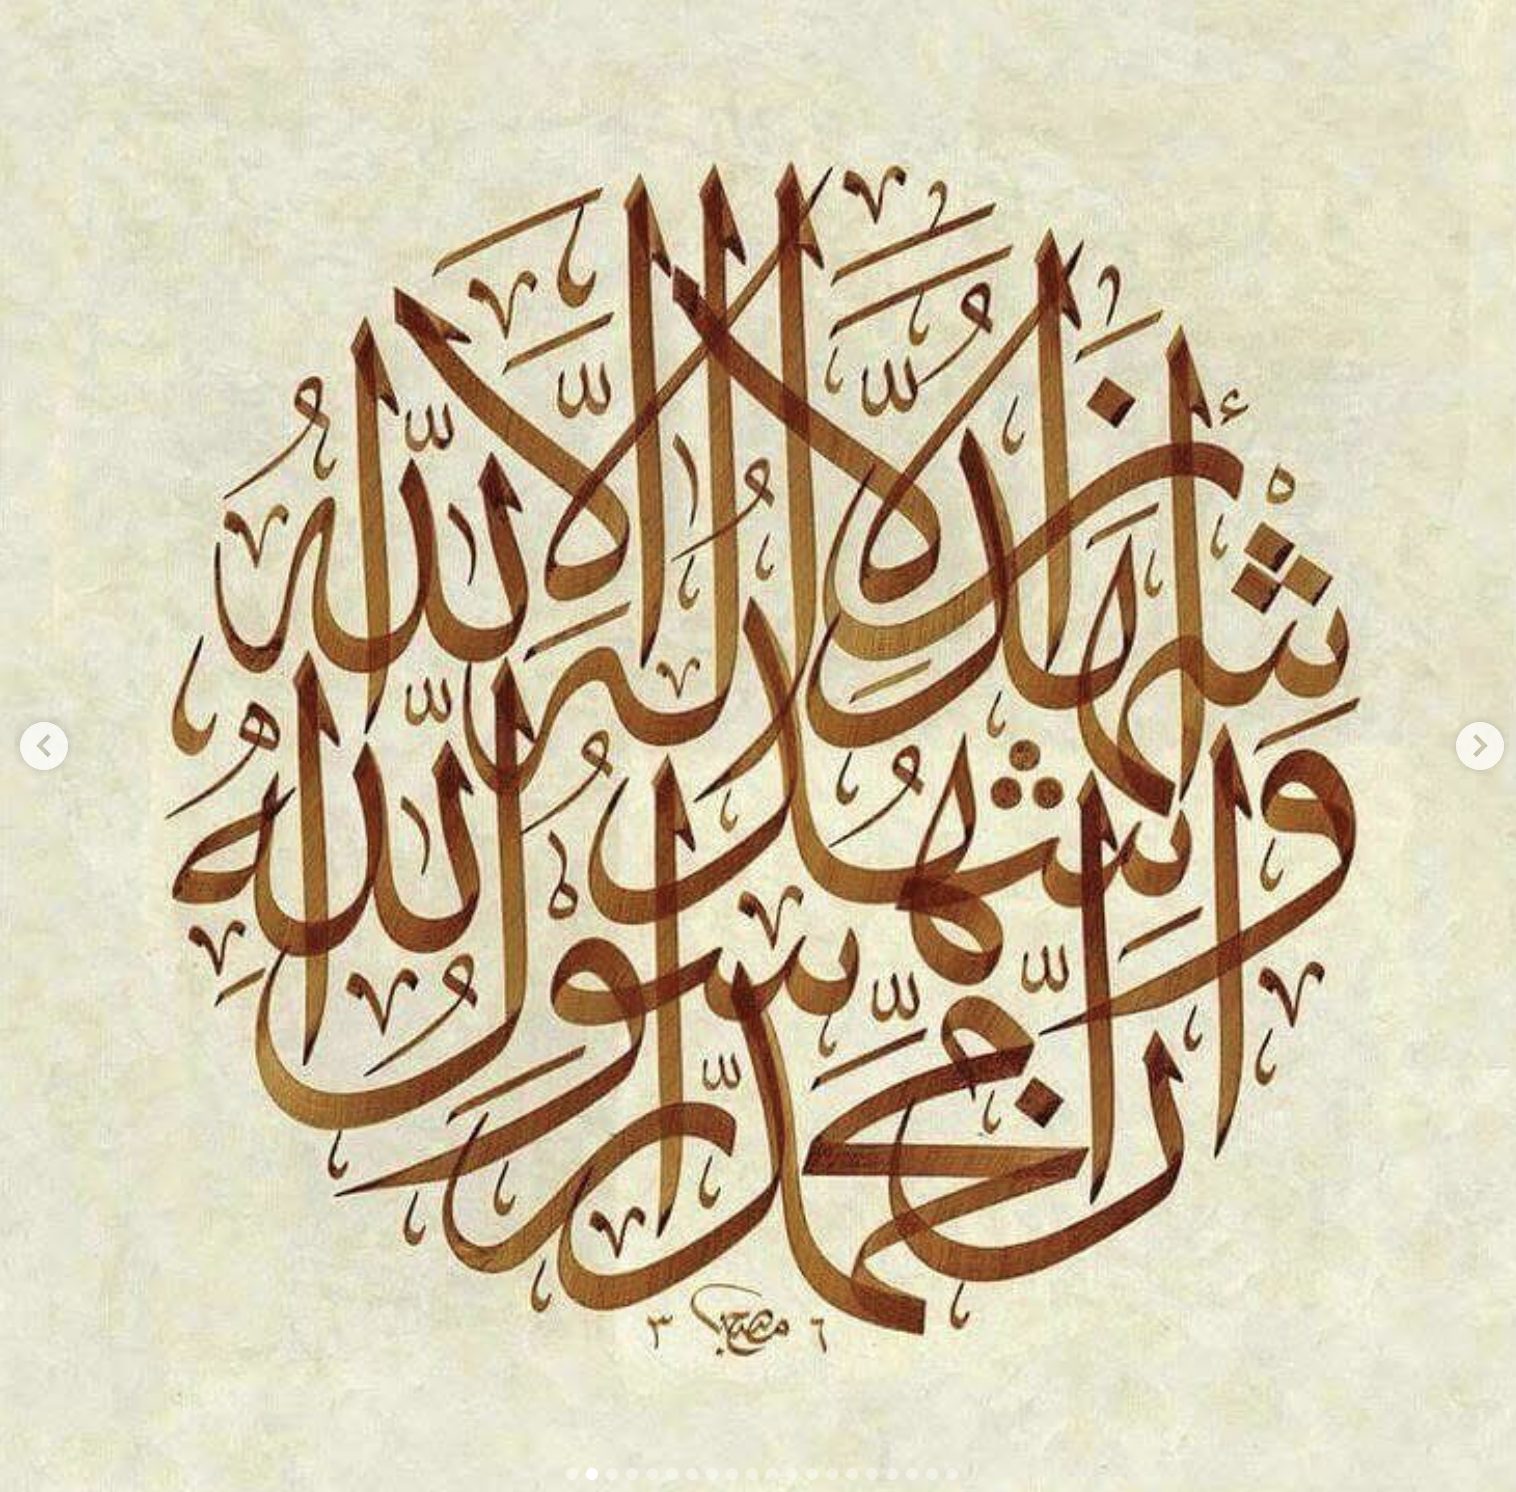 أَشْهَدُ أَنْ لَا إِلٰهَ إِلَّا اللّٰهُ
وَأَشْهَدُ أَنَّ مُحَمَّدًا رَسُولُ اللّٰهِ